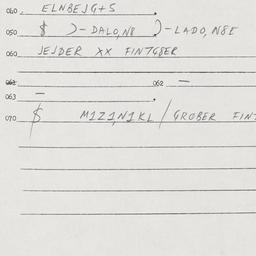 040. ELNBEJG+S.
050 $ )-DALO,N8 )-LADO,N8E
060 JEJDER XX FINTG8ER
062 062 —
063 — .
070 $ MIZ1,N1KL / GROBER FINT